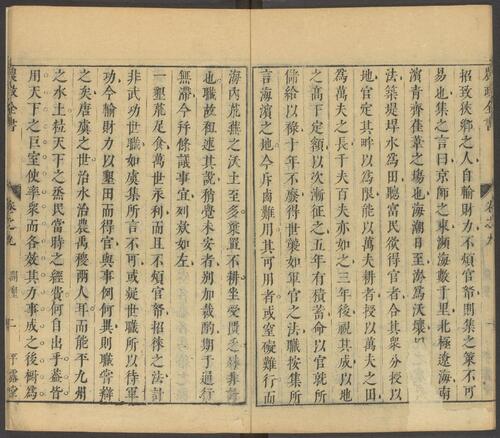 政全書
卷之九
招致狹鄉之人自輸財力不煩官帑則集之策不可
易也集之言曰京師之東瀕海數千里北極遼海南
濱青齊萑葦之場也海潮日至淤爲沃壤
法築堤捍水爲田聽富民欲得官者合其衆分授以
地官定其畔以爲限能以萬夫耕者授以萬夫之田
爲萬夫之長千夫百夫亦如之三年後視其成以地
之高下定額以次漸征之五年有積蓄命以官就所
儲給以祿十年不廢得世襲如軍官之法職按集所
言海濱之地今斥鹵難用其可用者或窒礙難行而
海內荒蕪之沃土至多棄置不耕坐受匱乏殊非計
也職故祖述其說稍覺未安者別加裁酌期于通行
無滯今幷條議事宜列欵如左
一墾荒足食萬世永利而且不煩官帑招徠之法計
非武功世職如虞集所言不可或疑世職所以待軍
功今輸財力以墾田而得官與事例何異則職嘗辯
之矣唐虞之世治水治農禹稷兩人耳而能平九州
之水土粒天下之烝民當時之經費何自出乎葢皆
用天下之巨室使率衆而各效其力事成之後樹爲
農政全書
卷之九
開墾
一
平露堂